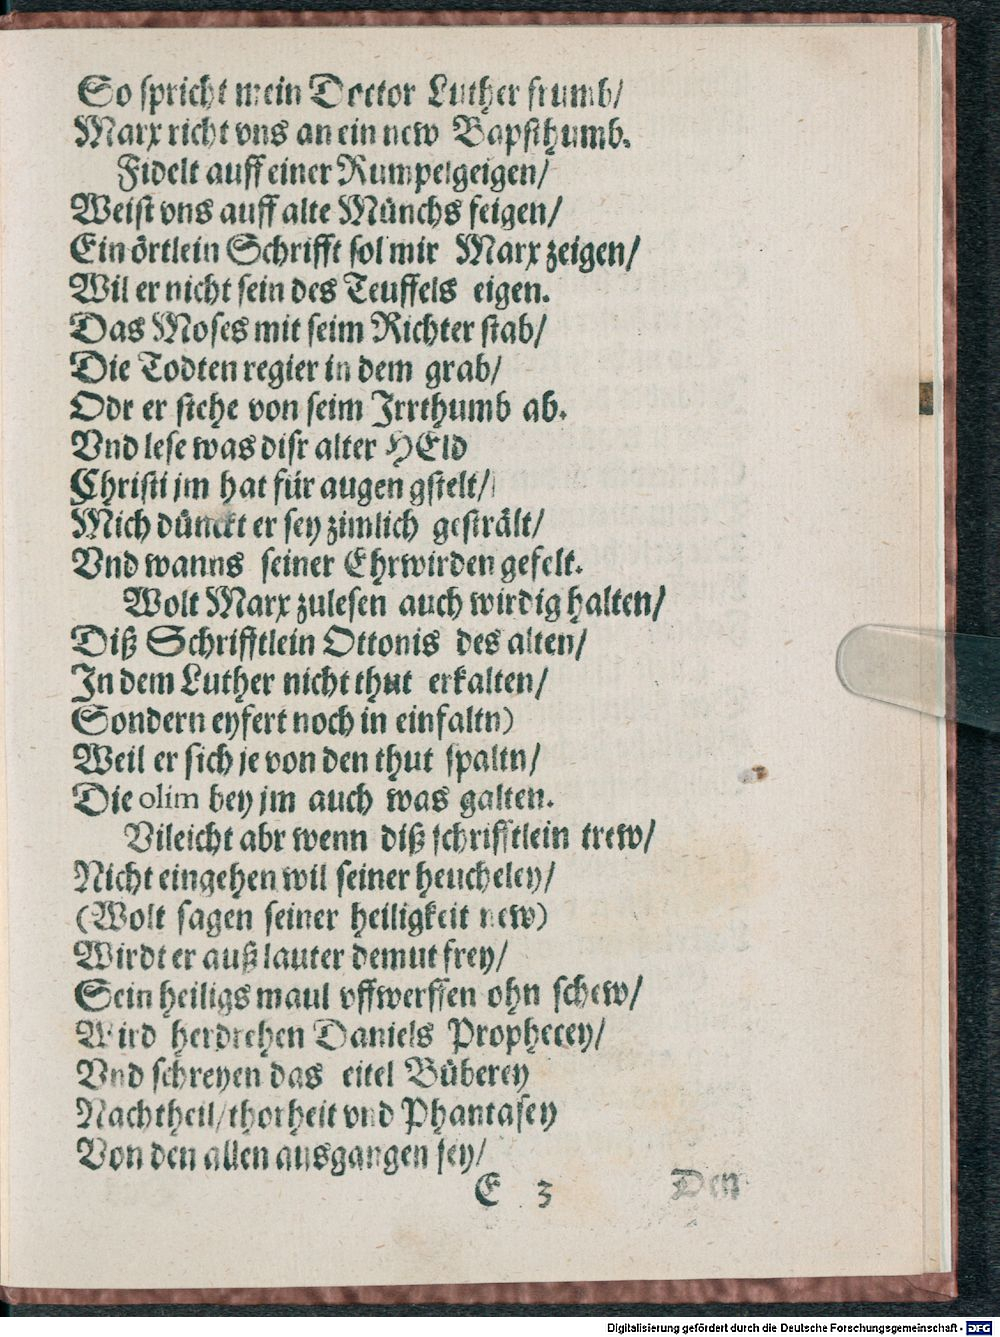 So spricht mein Doctor Luther frumb/
Marx richt vns an ein new Bapsthumb.
Fidelt auff einer Rumpelgeigen/
Weist vns auff alte Münchs feigen/
Ein örtlein Schrifft sol mir Marx zeigen/
Wil er nicht sein des Teuffels eigen.
Das Moses mit seim Richter stab/
Die Todten regier in dem grab/
Odr er stehe von seim Irrthumb ab.
Vnd lese was disr alter HEld
Christi jm hat für augen gstelt/
Mich dünckt er sey zimlich gestrält/
Vnd wanns seiner Ehrwirden gefelt.
Wolt Marx zulesen auch wirdig halten/
Diß Schrifftlein Ottonis des alten/
In dem Luther nicht thut erkalten/
Sondern eyfert noch in einfaltn)
Weil er sich je von den thut spaltn/
Die olim bey jm auch was galten.
Vileicht abr wenn diß schrifftlein trew/
Nicht eingehen wil seiner heucheley/
(Wolt sagen seiner heiligkeit new)
Wirdt er auß lauter demut frey/
Sein heiligs maul vffwerffen ohn schew/
Wird herdrehen Daniels Prophecey/
Vnd schreyen das eitel Büberey
Nachtheil/thorheit vnd Phantasey
Von den allen ausgangen sey/
E 3 Den
Digitalisierung gefördert durch die Deutsche Forschungsgemeinschaft - DFG